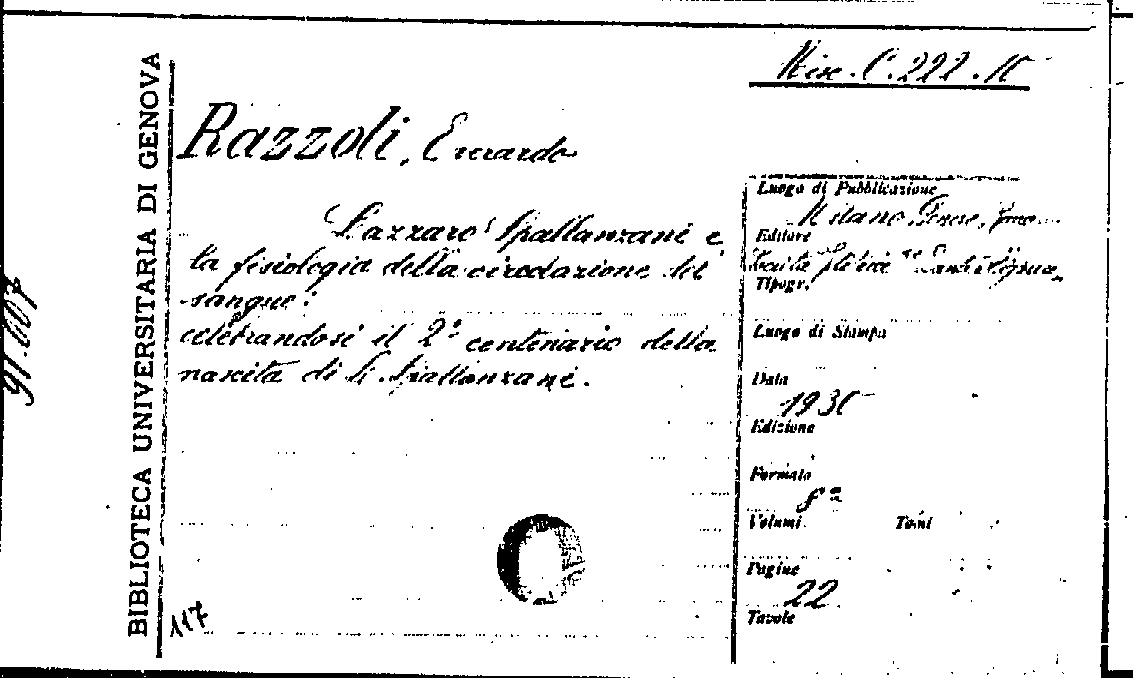 BIBLIOTECA UNIVERSITARIA DI GENOVA
Misc. C. 222. 10
Razzoli, Everardo
Lazzaro Spallanzani e
la fisiologia della circolazione del
sangue:
celebrandosi il 2° centenario della
nascita di L. Spallanzani.
Luogo di Pubblicazione
Milano
Editore
Tipogr.
Luogo di Stampa
Data
1930
Edizione
Formato
8°
Volumi Tomi
Pagine
22
Tavole
117
91.007